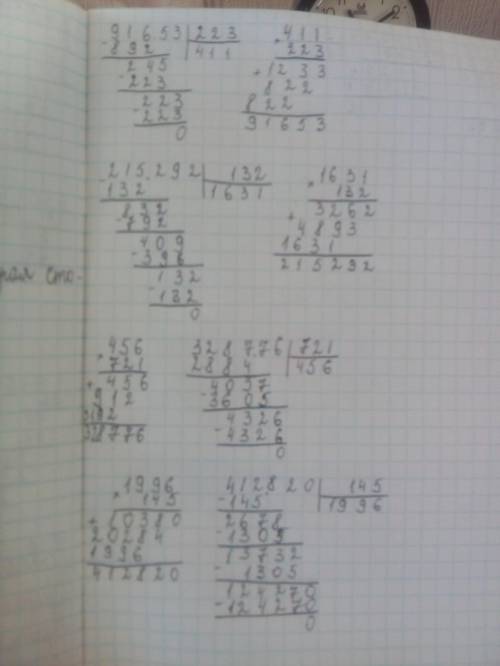 91653 | 223
- 892 | 411
245
- 223
223
- 223
0
× 411
223
+ 1233
822
822
91653
215292 | 132
132 | 1631
832
- 792
409
- 396
132
- 132
0
× 1631
132
+ 3262
4893
1631
215292
рая сто-
× 456
721
+ 456
912
328776
328776 | 721
2884 | 456
4037
- 3605
4326
- 4326
0
× 1996
145
+ 60380
20284
1996
412820
412820 | 145
- 145 | 1996
2678
- 1305
13732
- 1305
124270
- 124270
0